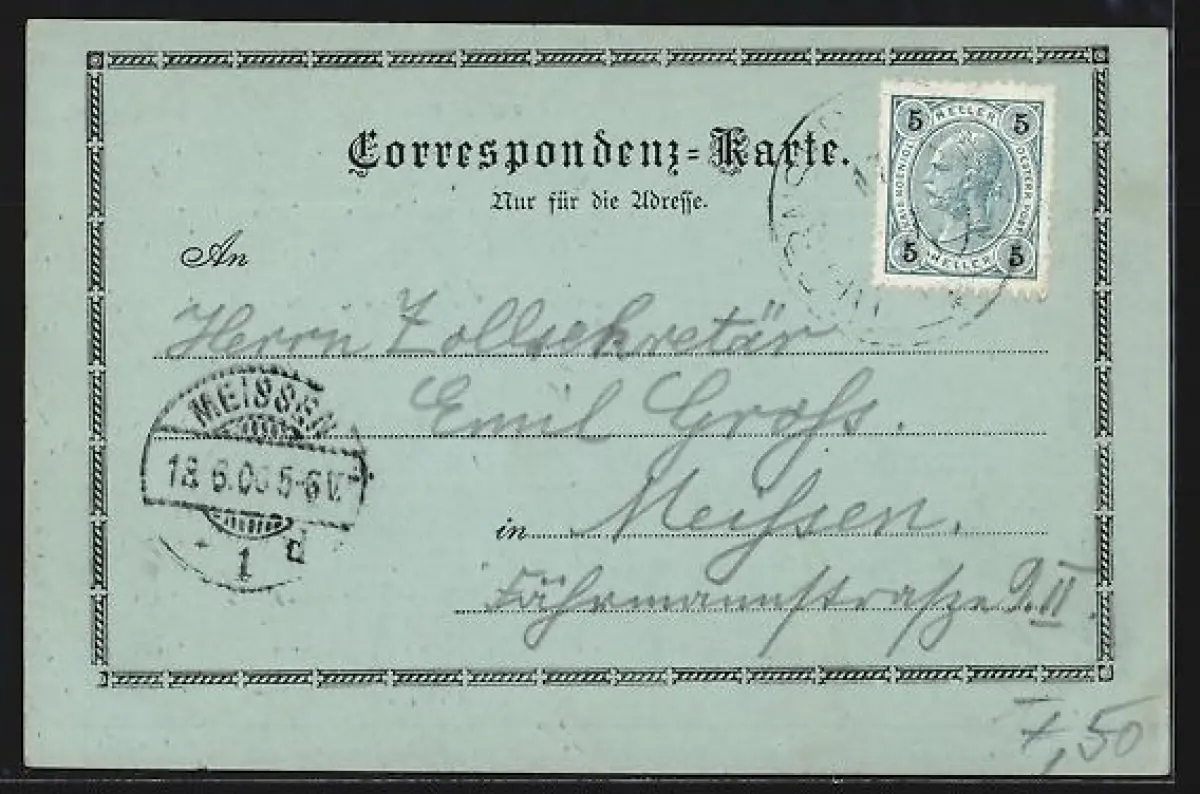 Correspondenz-Karte.
Nur für die Adresse.
5 HELLER 5
5 HELLER 5
An
Herrn Zollsekretär
Emil Groß.
in Meißen.
Fährmannstraße 9. II.
MEISSEN
18.6.00 5-6 V.
1 d
7,50